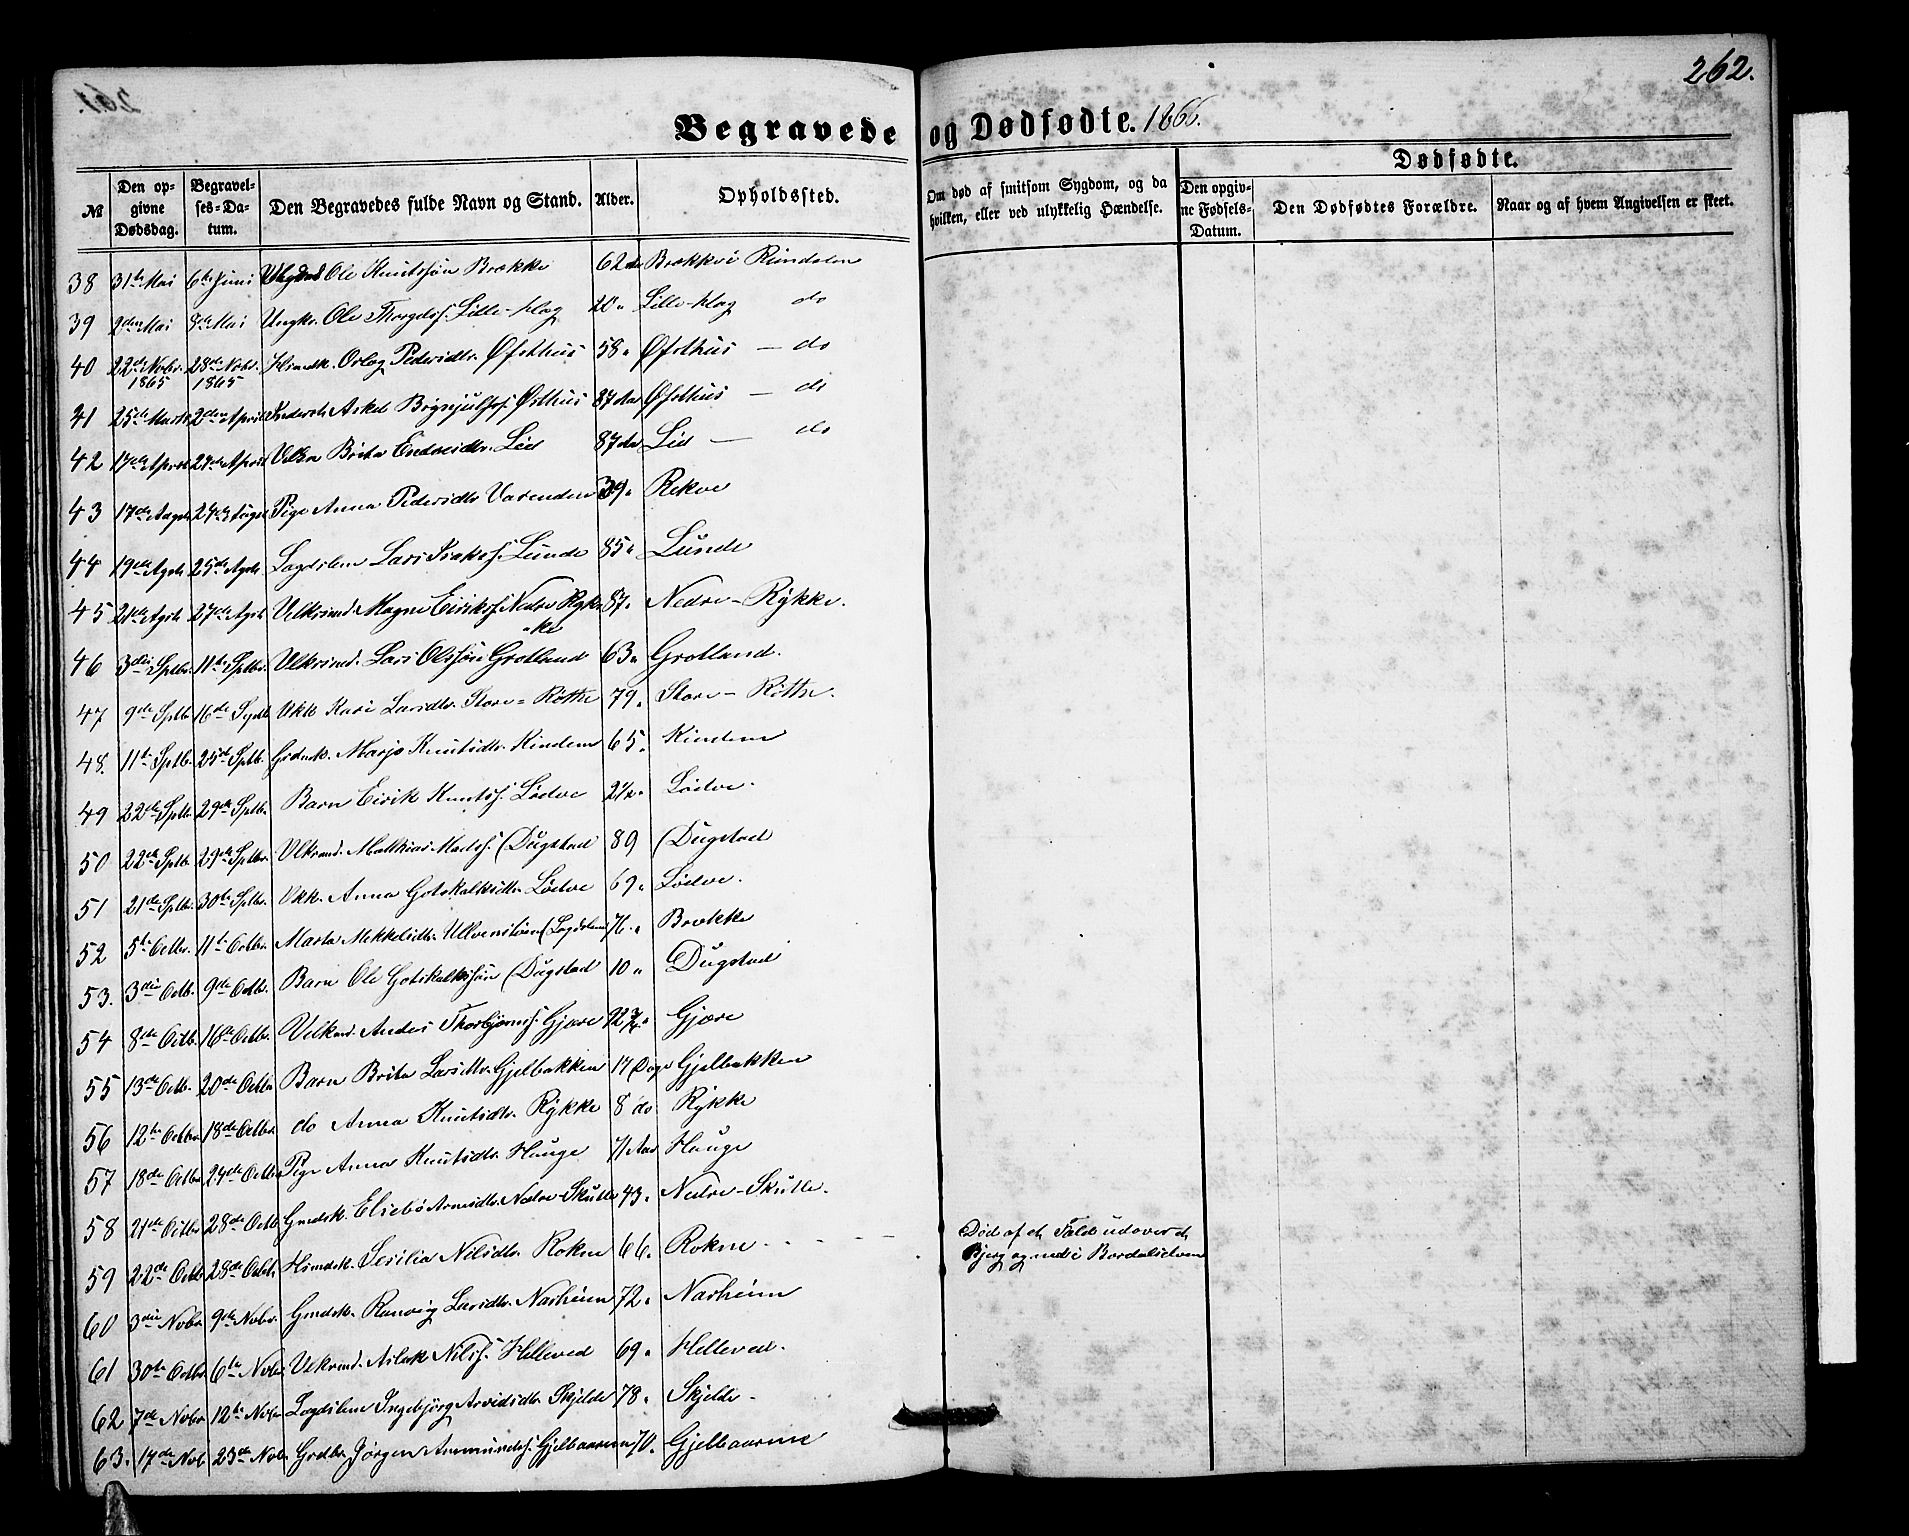 262.
Begravede og Dødfødte. 1866.
Dødfødte.
№
Den opgivne Dødsdag.
Begravelses-Datum.
Den Begravedes fulde Navn og Stand.
Alder.
Opholdssted.
Om død af smitsom Sygdom, og da hvilken, eller ved ulykkelig Hændelse.
Den opgivne Fødsels-Datum.
Den Dødfødtes Forældre.
Naar og af hvem Angivelsen er skeet.
38 31te Mai 6te Juni Ole Knutssön Brække 62 Brække i Rundalen
39 2den Mai 8de Mai Ungk. Ole Lille-Klag 20 " Lille-Klag do
40 22de Novbr. 1865 28de Novbr. 1865 Hsmdk. Pedersdtr. Øfsthus 58 " Øfsthus — do
41 25de Marts 2den April Askel Øfsthus 87 Aar Øfsthus — do
42 17de April 24de April Brita Endreidtr. Lid 87 Aar Lid — do
43 17de Augst 24de Augst Pige Anna Pedersdtr. 39 " Rekve
44 19de Agst 25de Agst Lægdslem Lars Isaks. Lunde 85 " Lunde
45 21de Agst 27de Agst Vilkrmd. Magne Eiriks. Nedre Rykke 87 " Nedre-Rykke.
46 3die Sptbr. 11te Sptbr. Vilkrmd. Lars Olssön Grotland 63 " Grotland.
47 9de Sptb. 16de Sptb. Vkk Kari Larsdtr. Store-Röthe 79 " Store-Röthe.
48. 11te Sptb. 25de Sptb. Grdmk. Marjo Knutsdtr. Kindem 65 " Kindem
49 22de Sptb. 29de Sptbr. Barn Eirik Knuts. Lödve 2½ " Lödve.
50 22de Sptb. 29de Sptbr. Vlkrmd. Mathias Mads. Dugstad 89 Dugstad
51 21de Sptb. 30te Sptbr. Vkk. Anna Gotskalksdtr. Lödve 69 " Lödve.
52 5te Octbr. 11te Octbr. Marta Mikkelsdtr. Ullvenstöen (Lægdslem) 76 " Brække
53. 3die Octb. 9de Octb. Barn Ole Gotskalkssön Dugstad 10 " Dugstad
54 8de Octb. 16de Octb. Anders Thorbjörns. Gjære Gjære
55 13de Octb. 20de Octbr Barn Brita Larsdtr. Gjelbakken 17 Dage Gjelbakken
56 12te Octbr 18de Octbr. do Anna Knutsdtr. Rykke 8 do Rykke
57 18de Octbr 24de Octbr Pige Anna Knutsdtr. Hauge 71 Aar Hauge
58 21de Octbr 28de Octb. Gmdsk. Elsebö Arnesdtr. Nedre-Skutle 43 " Nedre-Skutle.
59 22de Octb 28de Octb. Hsmdsk. Sesilia Nilsdtr. Rokne 66 " Rokne. - - - -
Död af et Fald udover et
Bjerg og ned i Bordalselven
60 3die Novbr 9de Novbr. Gmdsk. Ranvig Larsdtr. Narheim 72 " Narheim
61 30te Octbr. 6te Novbr Vlkrmd. Aslak Nils. Helleved 69 " Helleved.
62 7de Novbr 12te Novbr Lægdslem Ingebjörg Arvidsdtr. Skjelde 78 " Skjelde
63. 17de Nvb. 23de Nvb. Grdbr. Jörgen Ammunds. Gjelbaarne 70. Gjelbaarne